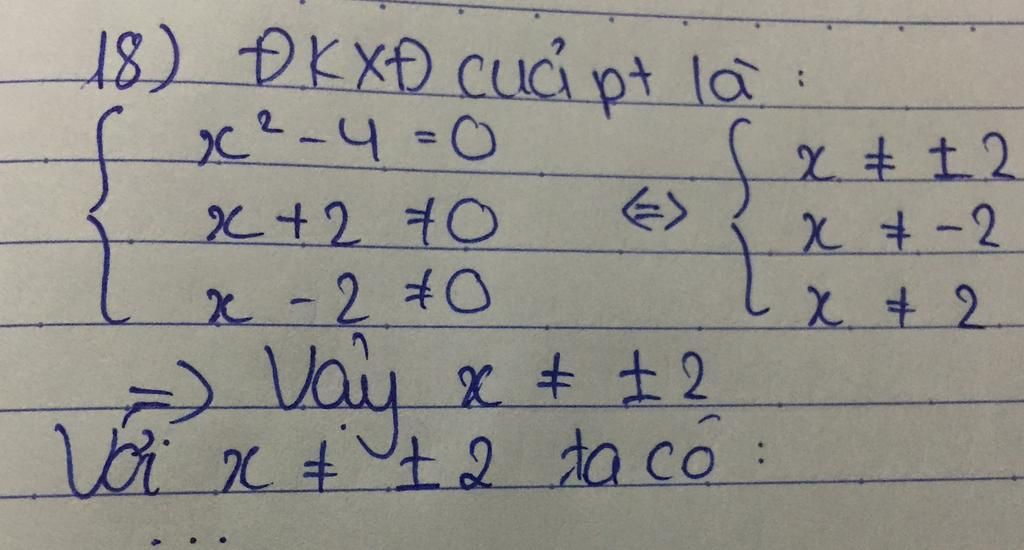 18) ĐKXĐ cuả pt là :
x² - 4 = 0
x + 2 ≠ 0 <=> x ≠ ± 2
x - 2 ≠ 0 x ≠ -2
x ≠ 2
=> Vậy x ≠ ± 2
Với x ≠ ± 2 ta có :
...